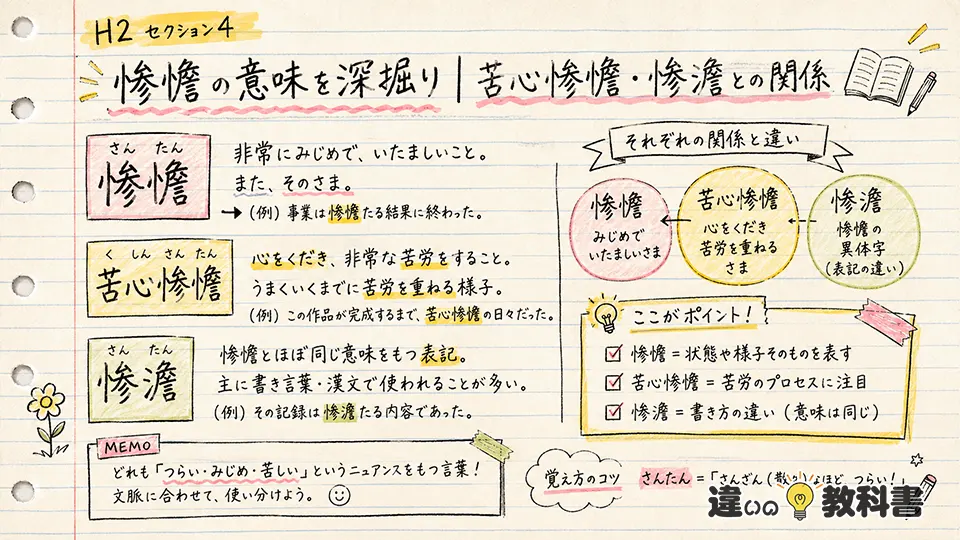 H2 セクション4
惨憺の意味を深掘り｜苦心惨憺・惨澹との関係
さん たん
惨憺
非常にみじめで、いたましいこと。
また、そのさま。
→(例) 事業は惨憺たる結果に終わった。
く しん さん たん
苦心惨憺
心をくだき、非常な苦労をすること。
うまくいくまでに苦労を重ねる様子。
(例) この作品が完成するまで、苦心惨憺の日々だった。
さん たん
惨澹
惨憺とほぼ同じ意味をもつ表記。
主に書き言葉・漢文で使われることが多い。
(例) その記録は惨澹たる内容であった。
MEMO
どれも「つらい・みじめ・苦しい」というニュアンスをもつ言葉！
文脈に合わせて、使い分けよう。
それぞれの関係と違い
惨憺
みじめで
いたましいさま
苦心惨憺
心をくだき
苦労を重ねる
さま
惨澹
惨憺の
異体字
(表記の違い)
ここがポイント！
惨憺＝状態や様子そのものを表す
苦心惨憺＝苦労のプロセスに注目
惨澹＝書き方の違い (意味は同じ)
覚え方のコツ
さんたん＝「さんざん(散々)なほど つらい！」
違いの教科書